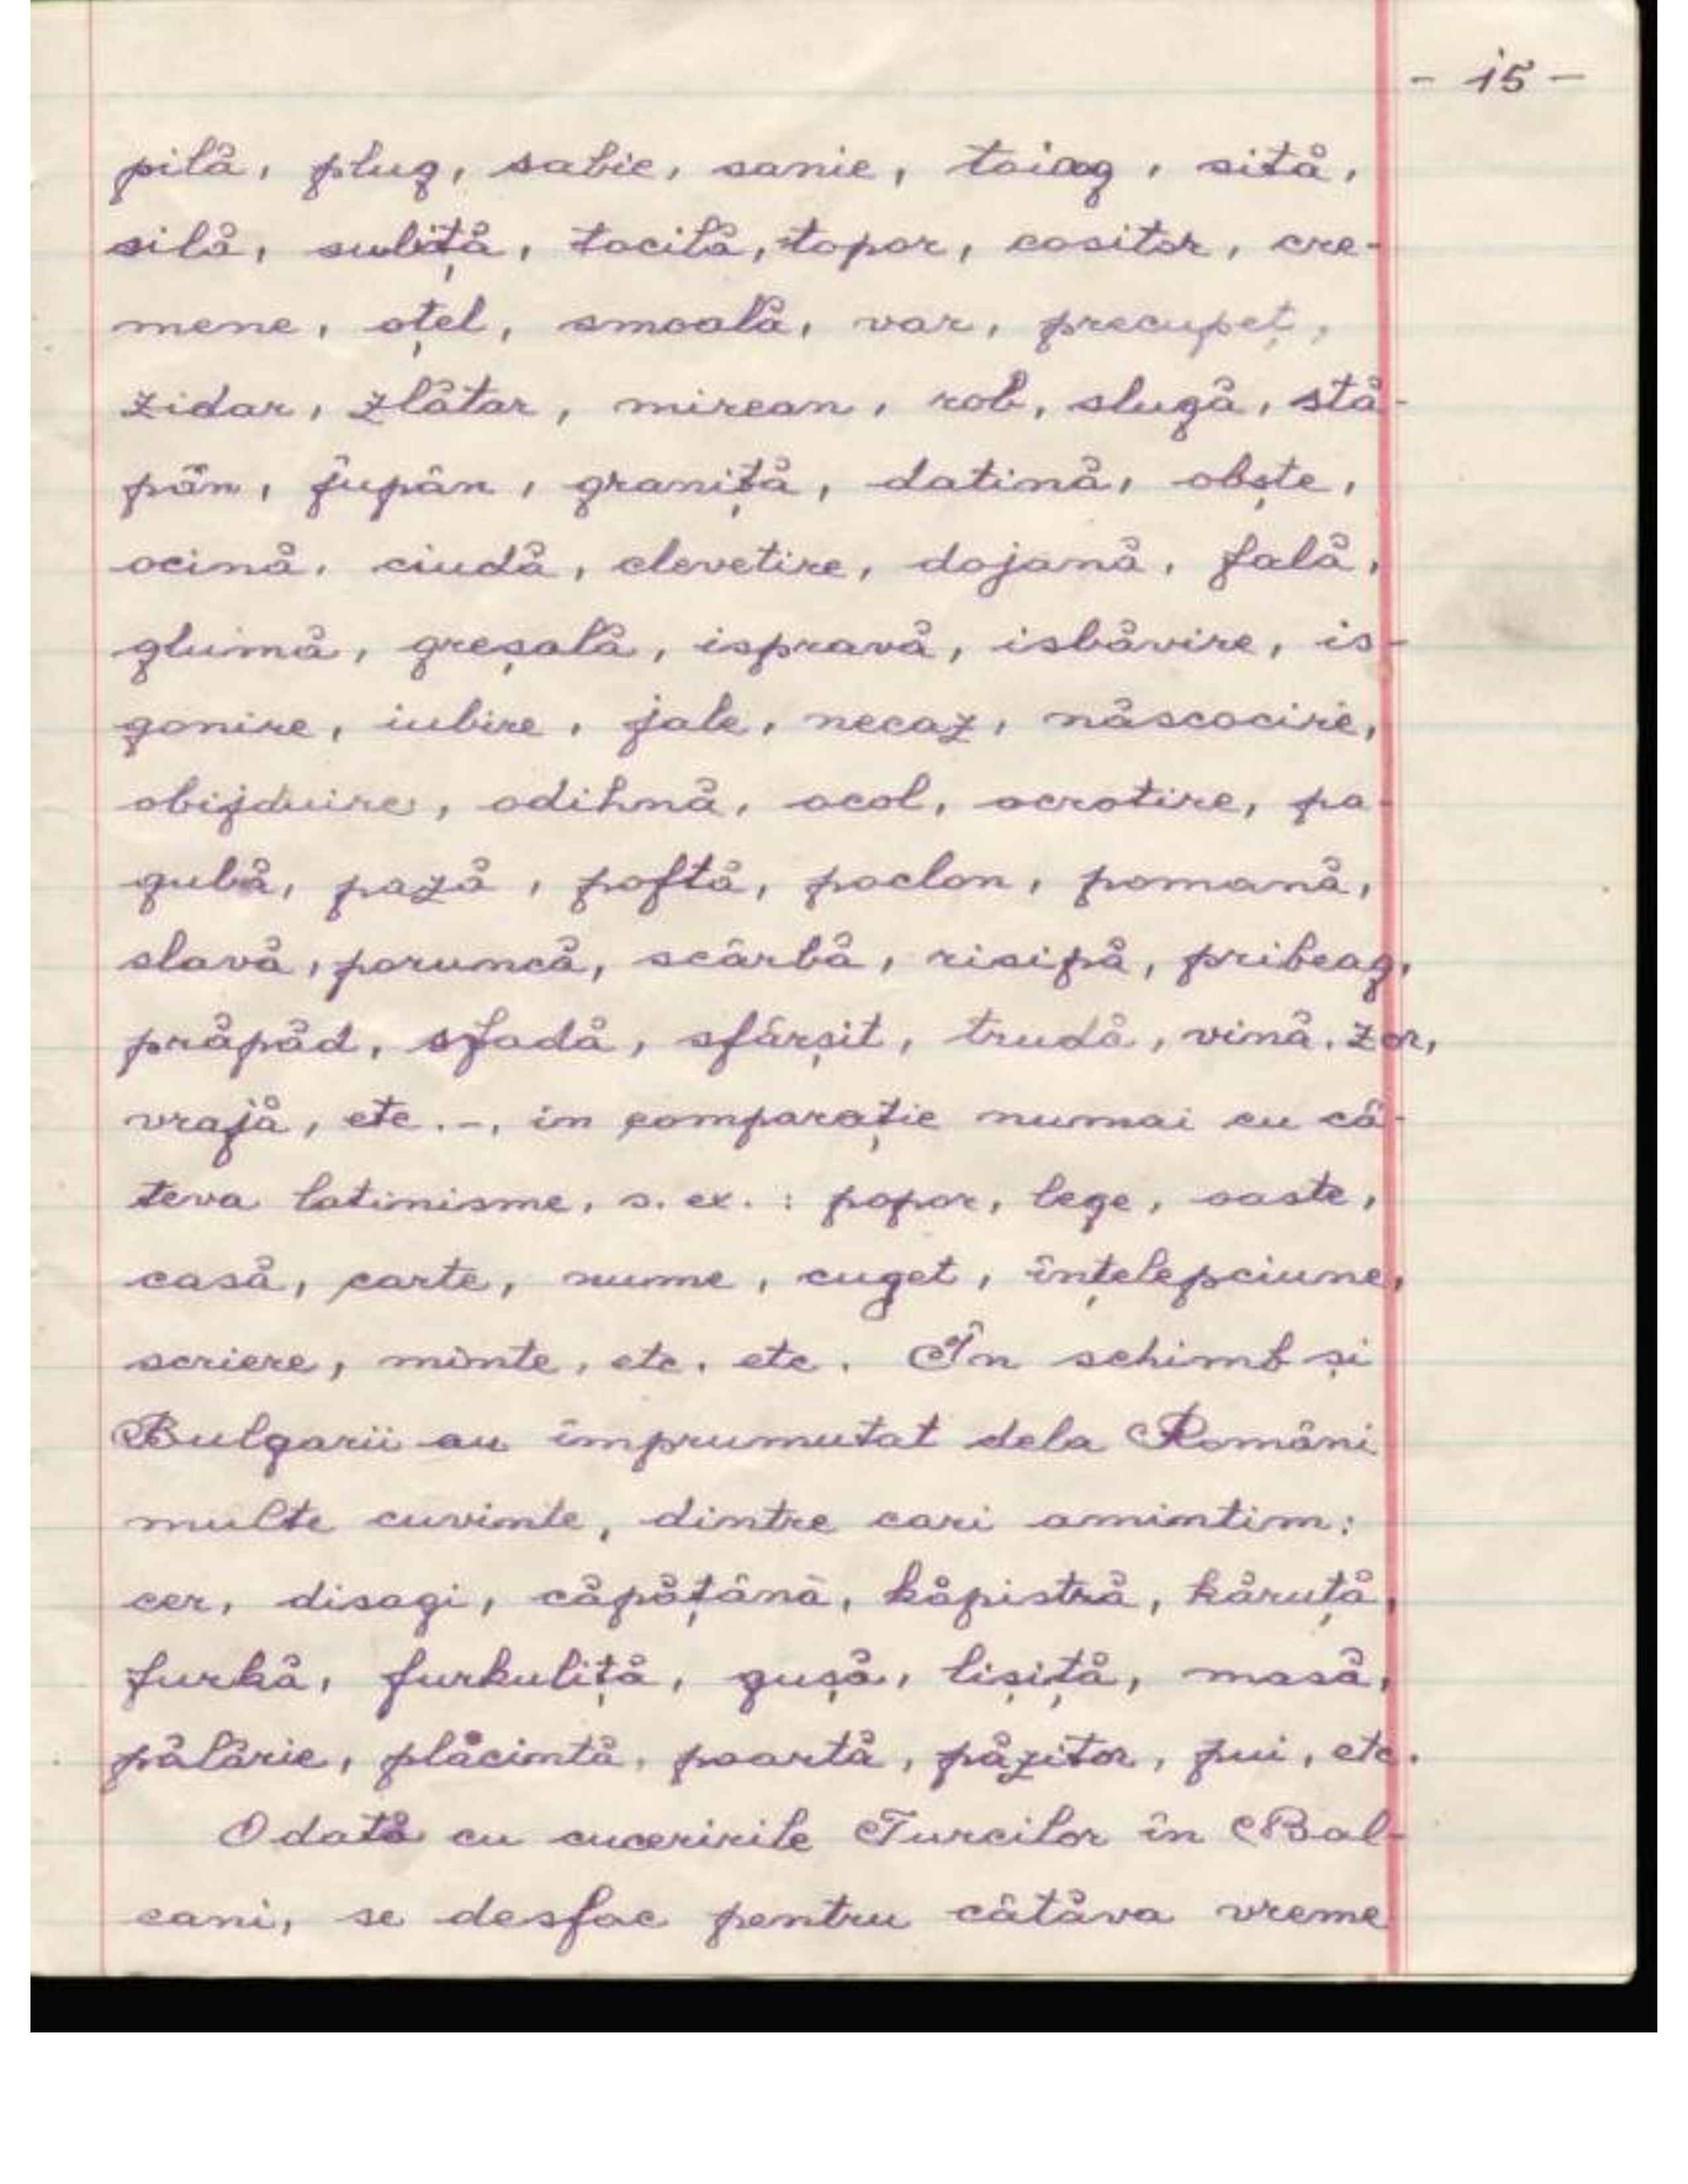 - 15 -
pilă, plug, sabie, sanie, toiag, sită,
silă, suliță, tocilă, topor, cositor, cre-
mene, oțel, smoală, var, precupeț,
zidar, zlătar, mirean, rob, slugă, stă-
pân, jupân, graniță, datină, obște,
ocină, ciudă, clevetire, dojană, fală,
glumă, greșală, ispravă, isbăvire, is-
gonire, iubire, jale, necaz, născocire,
obijduire, odihnă, ocol, ocrotire, pa-
gubă, pază, poftă, poclon, pomană,
slavă, poruncă, scârbă, risipă, pribeag,
prăpăd, sfadă, sfârșit, trudă, vină, zor,
vrajă, etc.-, in comparație numai cu câ-
teva latinisme, s. ex.: popor, lege, oaste,
casă, carte, nume, cuget, înțelepciune,
scriere, minte, etc. etc. În schimb și
Bulgarii au împrumutat dela Români
multe cuvinte, dintre cari amintim:
cer, disagi, căpățână, kăpistră, kăruță,
furkă, furkuliță, gușă, lișiță, masă,
pălărie, plăcintă, poartă, păzitor, pui, etc.
Odată cu cuceririle Turcilor în Bal-
cani, se desfac pentru câtăva vreme